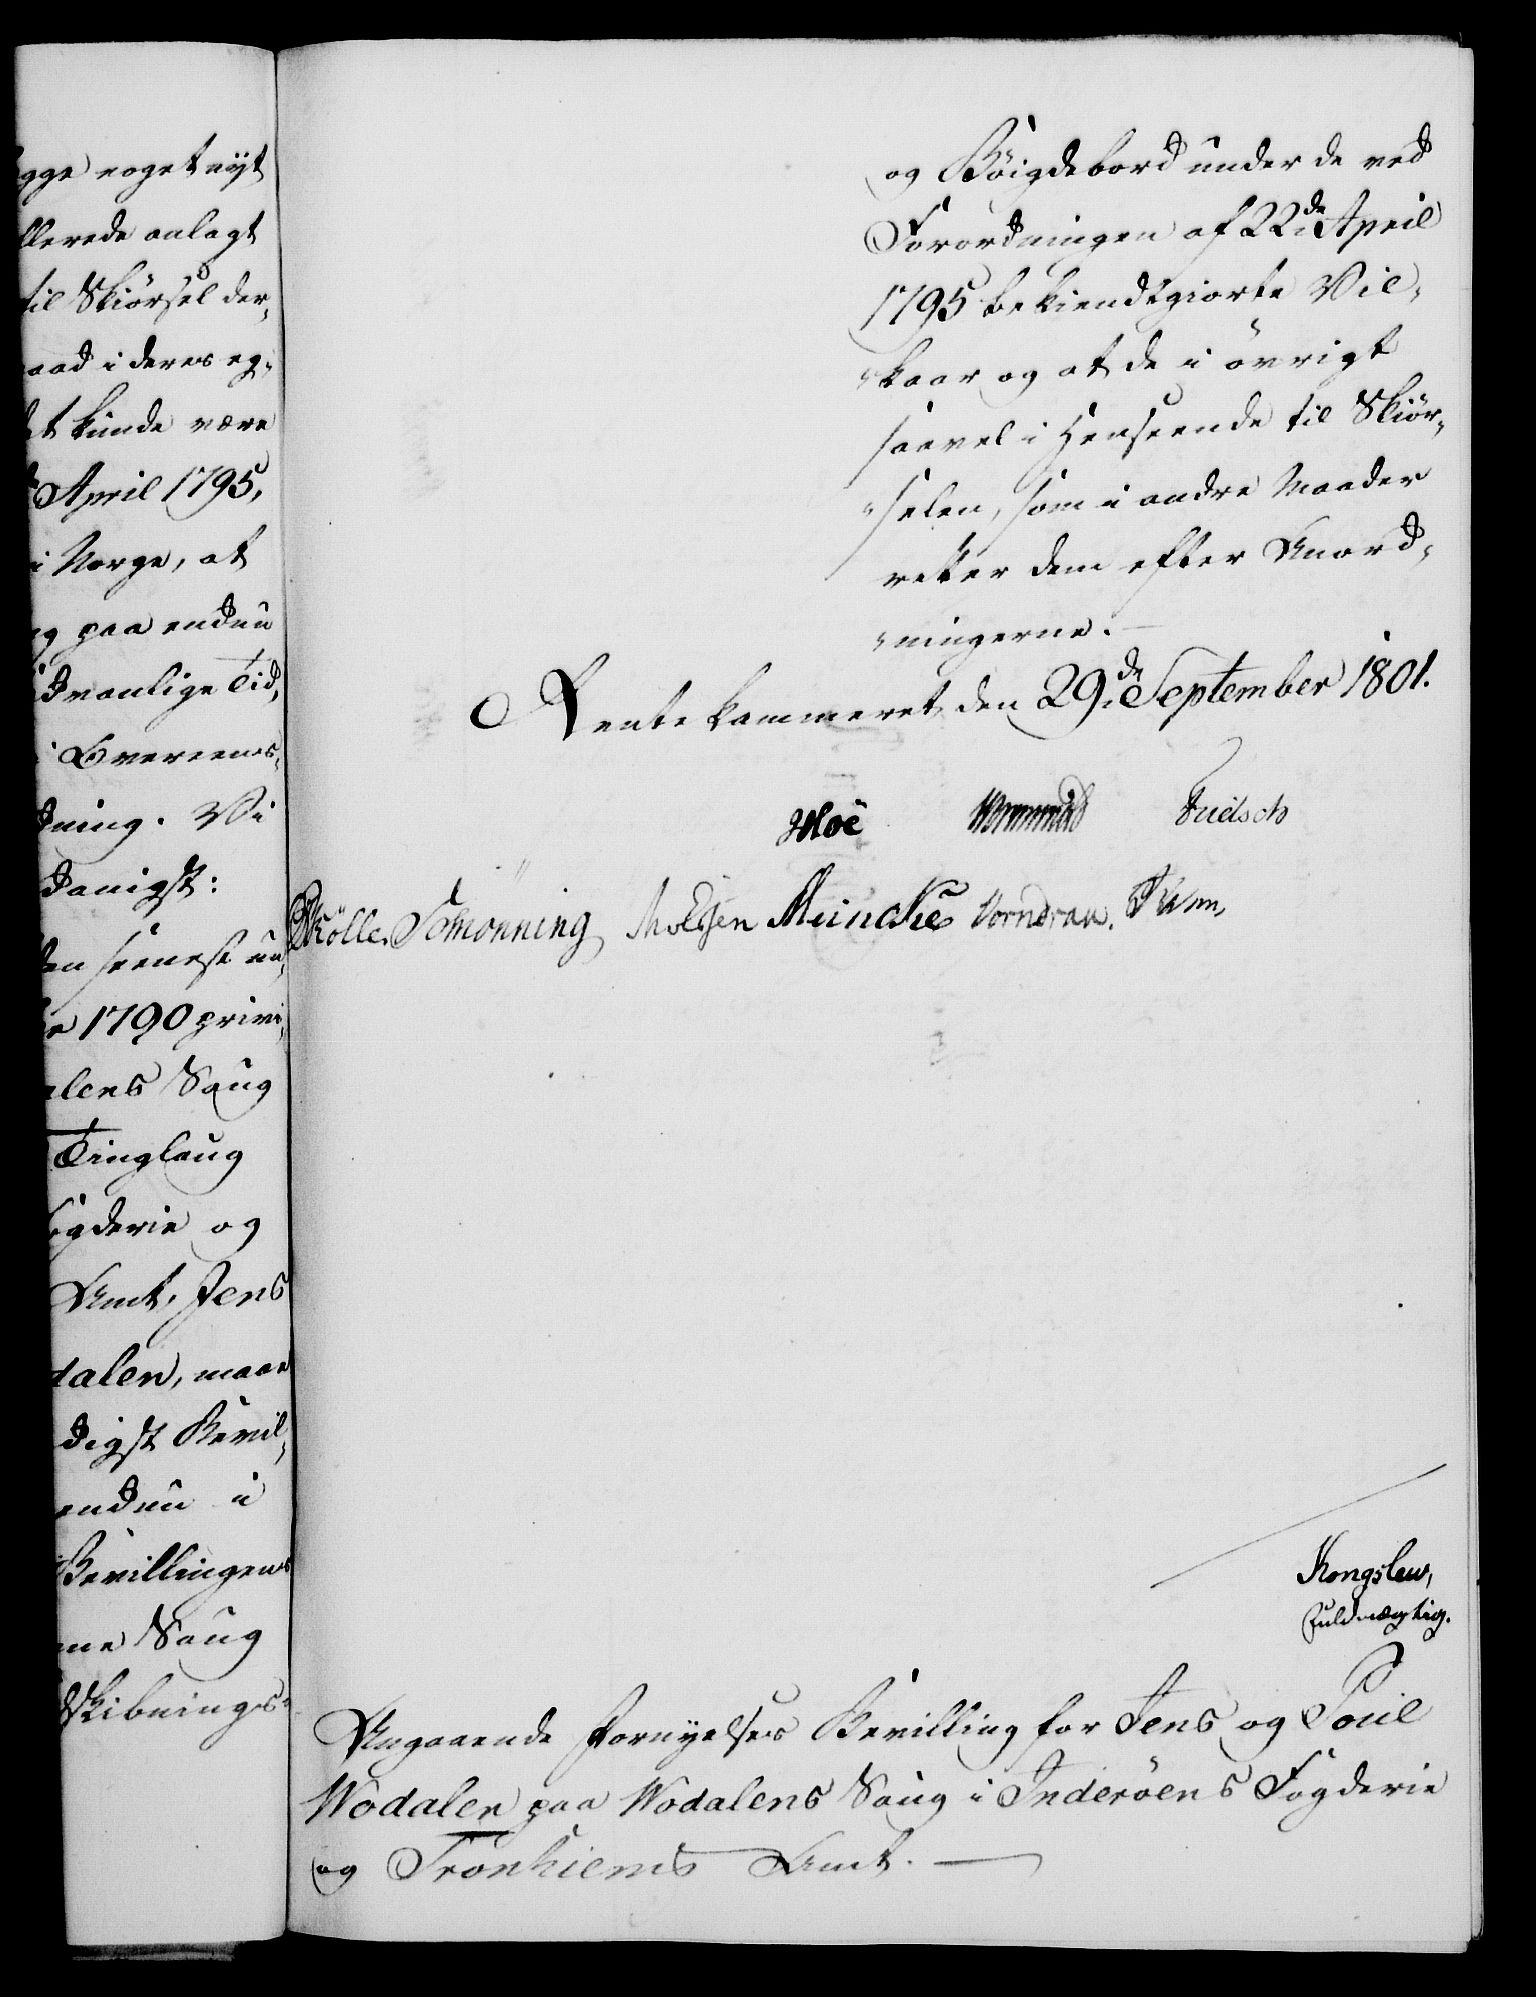 gge noget nyt
llerede anlagt
til Skiörsel der„
aad i deres eg„
et kunde være
April 1795,
i Norge, at
paa endnu
dvanlige Tid,
Overeens„
dning. Vi
danigst:
den seeneste un„
1790 privi„
alens Saug
Tinglaug
ögderie og
Amt, Jens
dalen, maae
digst Bevil„
endnu i
Bevillingens
Saug
dskibnings„
og Böigdebord under de ved
Forordningen af 22de April
1795 bekiendtgiorte Vil„
„kaar og at de i övrigt
saavel i Henseende til Skiör„
„selen, som i andre Maader
retter dem efter Anord„
„ningerne.
Rentekammeret den 29de September 1801.
Moe
Schönning Müncke Vorndran.
Kongslew,
Fuldmægtig.
Angaaende Fornyelses Bevilling for Jens og Poul
Wodalen paa Wodalens Saug i Inderöens Fogderie
og Tronhiems Amt.